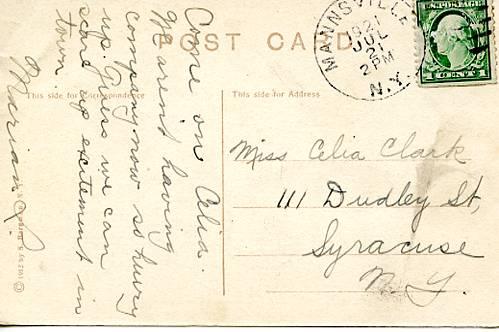 POST CARD
This side for Correspondence
This side for Address
MANNSVILLE
1921
JUL
21
2 PM
N.Y.
Come on Celia.
We aren't having
company now so hurry
up. Guess we can
scare up excitement in
town.
Marian L.
Miss Celia Clark
111 Dudley St,
Syracuse
N.Y.
© 1912 by S.